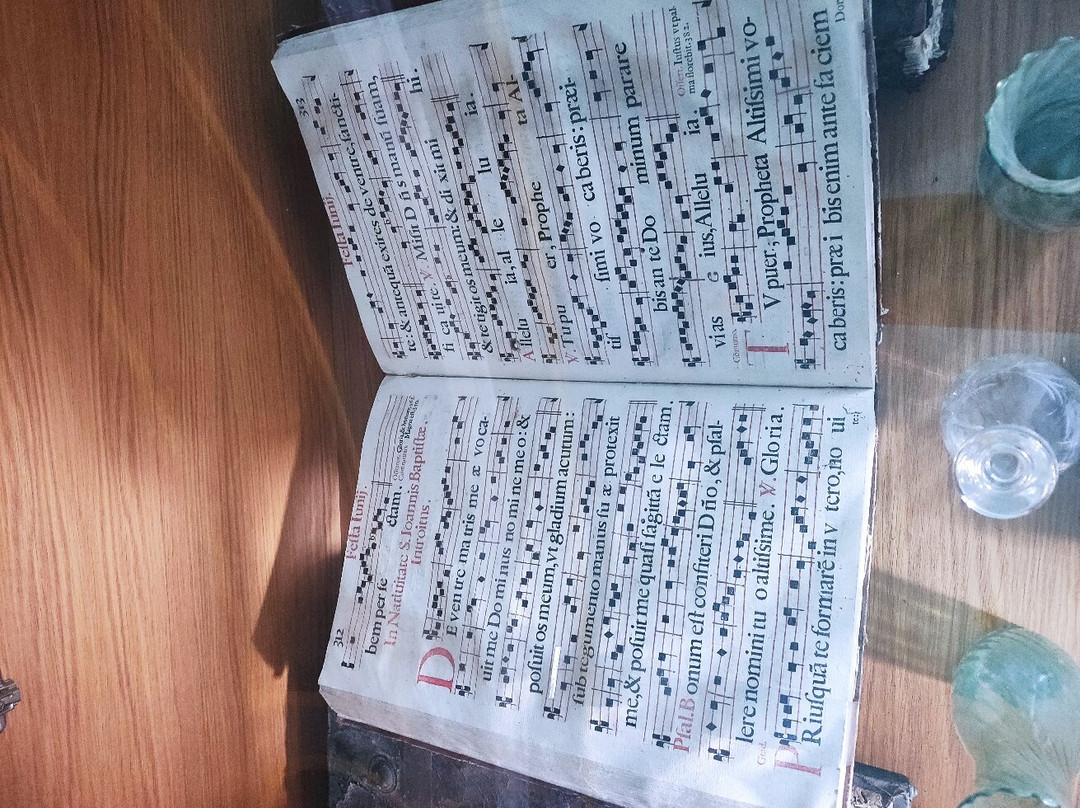 312
Festa Iunij.
bem per fe ctam.
In Natiuitate S. Ioannis Baptistæ.
Introitus.
DE ven tre ma tris me æ vo ca-
uit me Do mi nus no mi ne me o: &
posuit os meum, vt gladium acutum:
sub tegumento manus su æ protexit
me, & posuit me quasi sagittã e le ctam.
Psal. Bonum est confiteri Dño, & psal-
lere nomini tu o altissime. ℣. Glo ria.
Grad.
PRiusquã te formarẽ in v tero, no ui
te:
313
Festa Iunij.
te: & antequã exires de ventre, sancti-
fi ca ui te. ℣. Misit Dñs manũ suam,
& tetigit os meum: & di xit mi hi.
Allelu ia, al le lu ia.
℣. Tu pu er, Prophe ta Al-
tis simi vo ca beris: præi-
bis an te Do minum parare
vi as e ius, Allelu ia.
Offert. Iustus vt pal-
ma florebit. 382.
Communio
TV puer, Propheta Altissimi vo-
ca beris: præ i bis enim ante fa ciem
Do